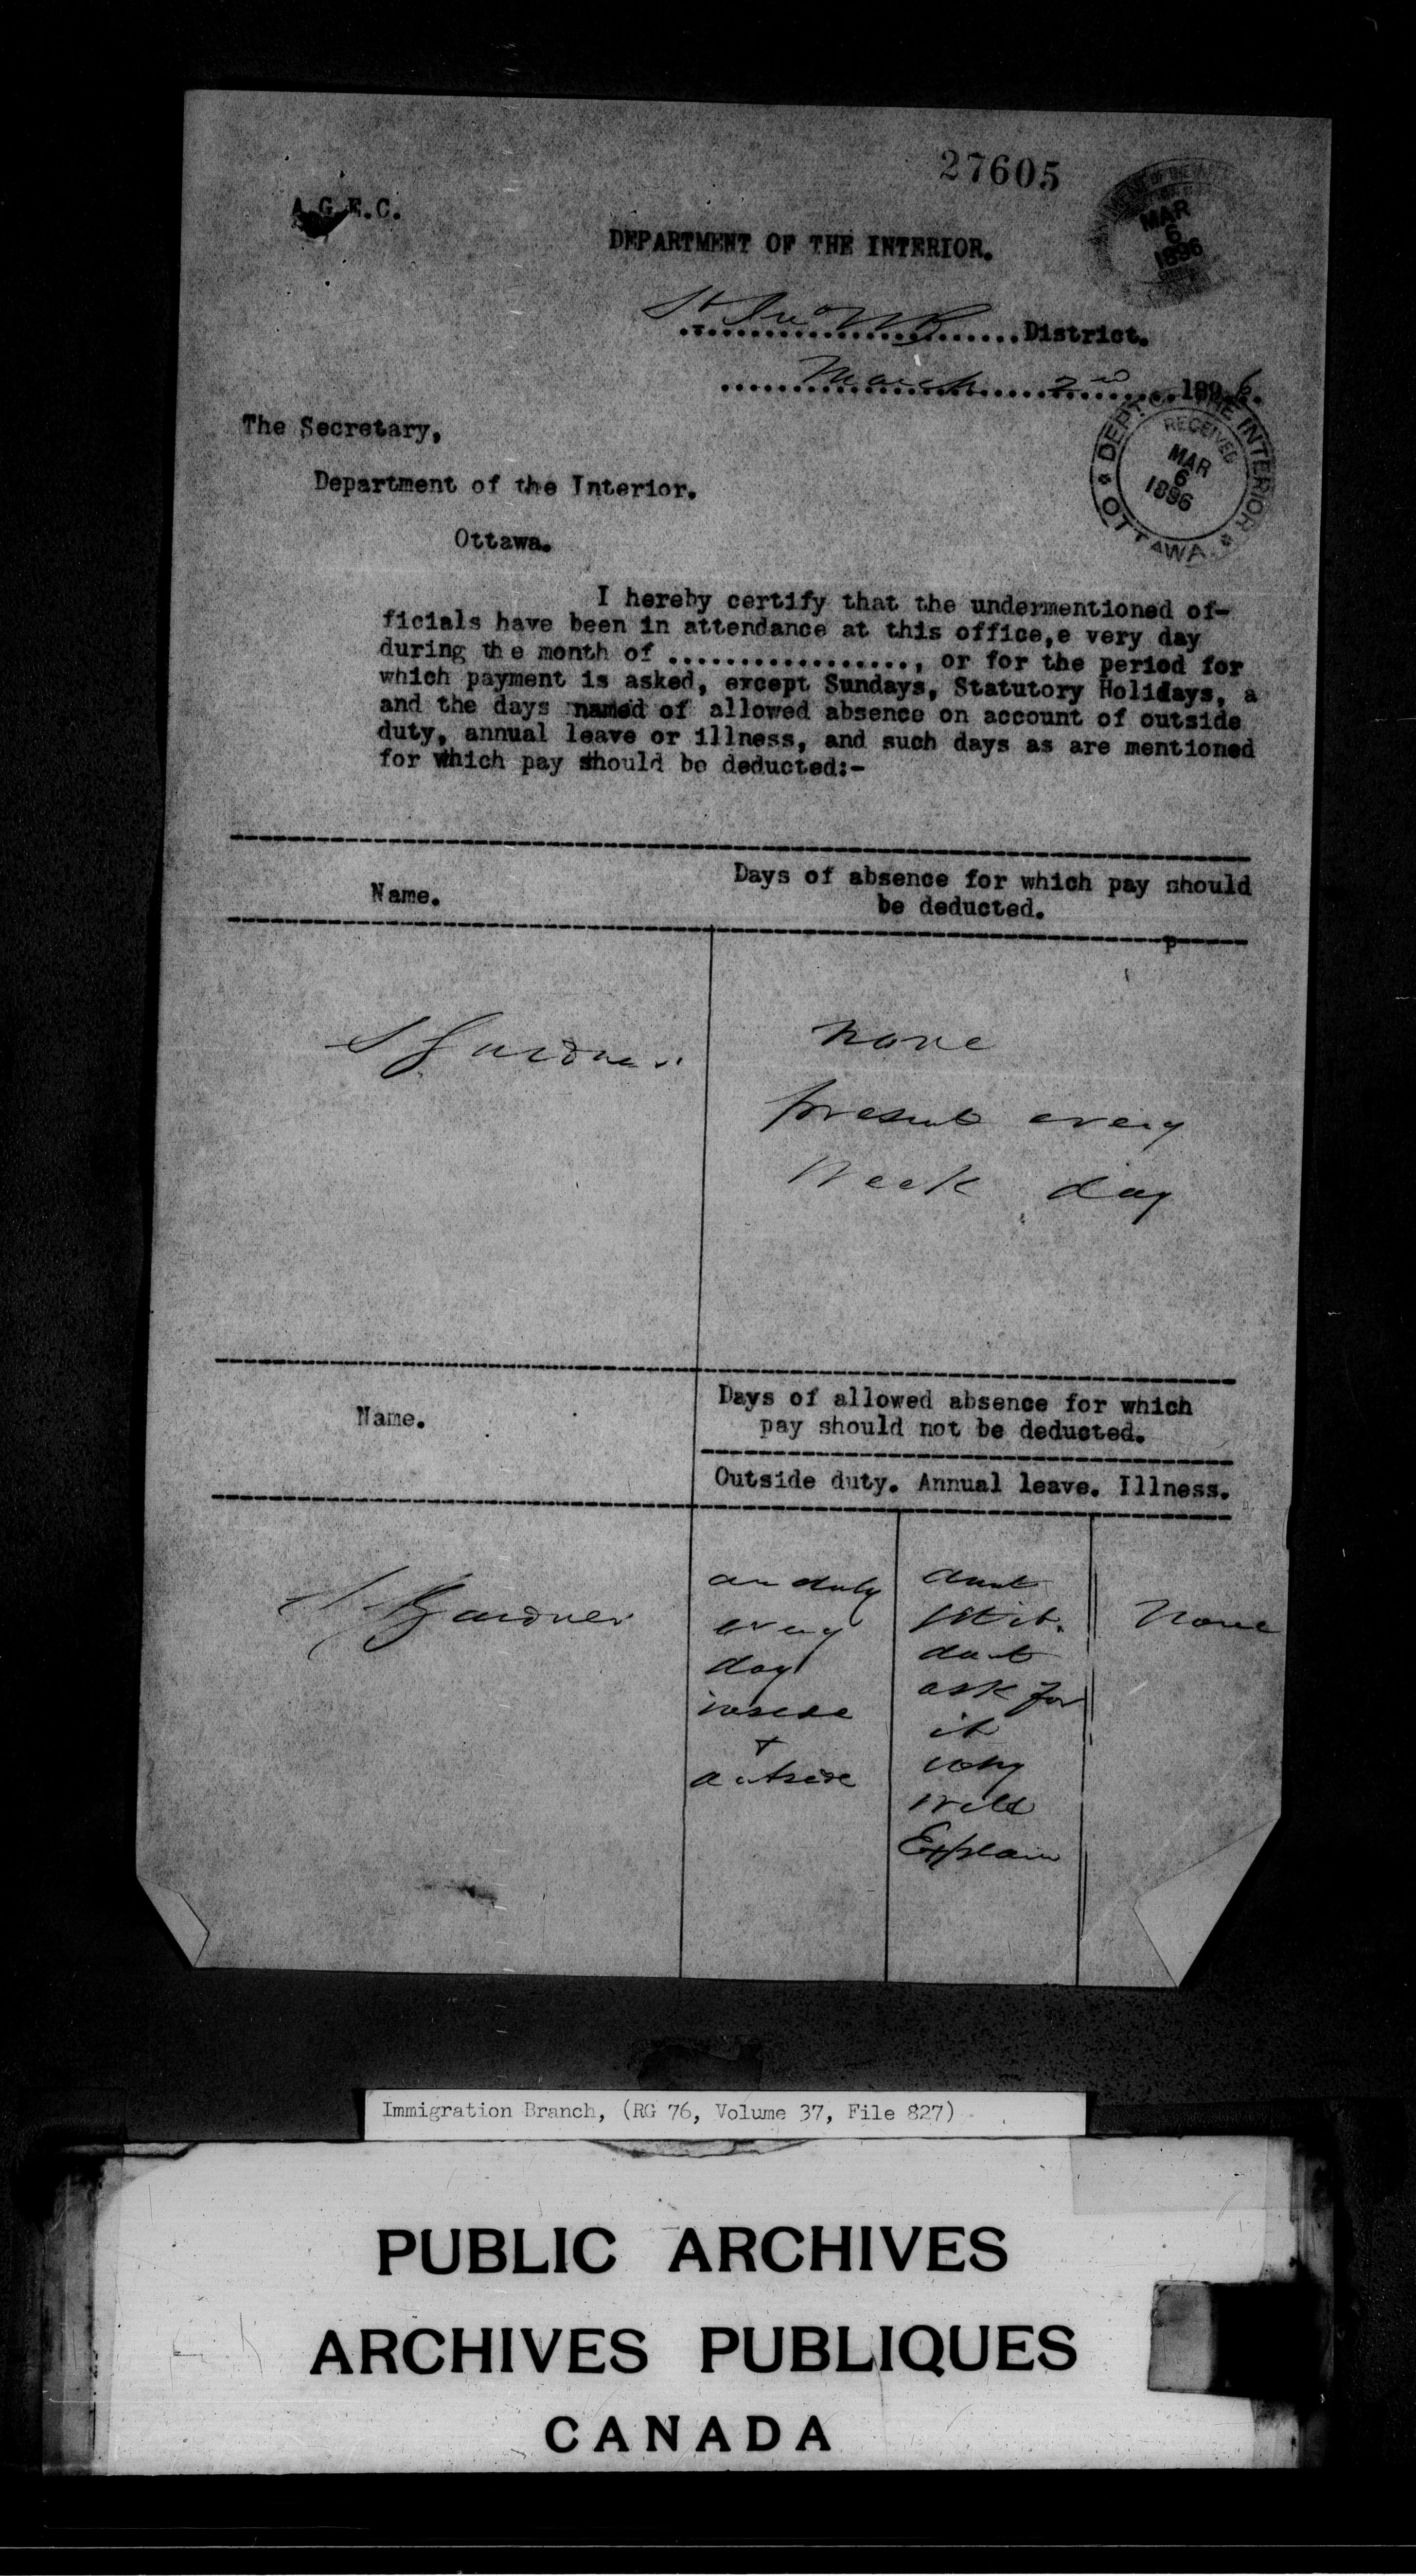 27605
A.G.E.C.
MAR
6
1896
DEPARTMENT OF THE INTERIOR.
St Jno NB District.
March 2nd 1896.
The Secretary,
DEPT. OF THE INTERIOR
RECEIVED
MAR
6
1896
OTTAWA
Department of the Interior.
Ottawa.
I hereby certify that the undermentioned of-
ficials have been in attendance at this office,e very day
during the month of ................., or for the period for
which payment is asked, except Sundays, Statutory Holidays, a
and the days named of allowed absence on account of outside
duty, annual leave or illness, and such days as are mentioned
for which pay should be deducted:-
Name.
Days of absence for which pay should
be deducted.
P
S Gardner
none
present every
Week day
Name.
Days of allowed absence for which
pay should not be deducted.
Outside duty. Annual leave. Illness.
S. Gardner
on duty
every
day
inside
+
outside
dont
get it.
dont
ask for
it
why
Will
Explain
None
Immigration Branch, (RG 76, Volume 37, File 827)
PUBLIC ARCHIVES
ARCHIVES PUBLIQUES
CANADA